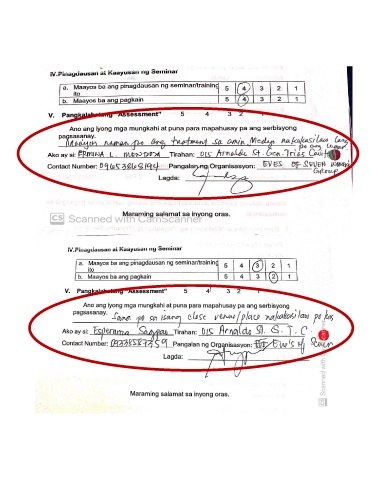 IV.Pinagdausan at Kaayusan ng Seminar
a. Maayos ba ang pinagdausan ng seminar/training ito 5 4 3 2 1
b. Maayos ba ang pagkain 5 4 3 2 1
V. Pangkalahatang Assessment* 5 4 3 2 1
Ano ang iyong mga mungkahi at puna para mapahusay pa ang serbisyong
pagsasanay. Maayos naman po ang treatment sa amin Medyo nakakasilaw lang
po ang
Ako ay si: ERMINA L. MENDOZA Tirahan: 015 Arnaldo St. Gen. Trias Cavite
Contact Number: 09653868194 Pangalan ng Organisasyon: EVES OF SEVEN
Group
Lagda:
Maraming salamat sa inyong oras.
CS Scanned with CamScanner
IV.Pinagdausan at Kaayusan ng Seminar
a. Maayos ba ang pinagdausan ng seminar/training ito 5 4 3 2 1
b. Maayos ba ang pagkain 5 4 3 2 1
V. Pangkalahatang Assessment* 5 4 3 2 1
Ano ang iyong mga mungkahi at puna para mapahusay pa ang serbisyong
pagsasanay. Sana po sa isang close venue/place nakakasilaw po
Ako ay si: Esperanza Tirahan: 015 Arnaldo St. G. T. C.
Contact Number: Pangalan ng Organisasyon: Eve's of Seven
Lagda:
Maraming salamat sa inyong oras.
CS Scanned with